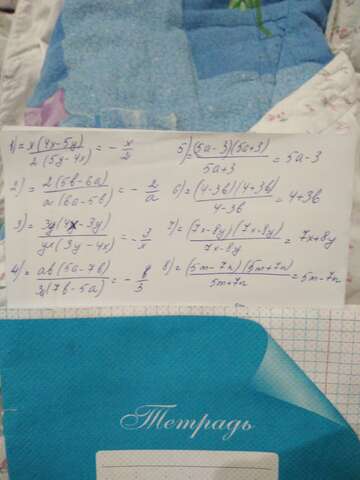 1) = x(4x-5y) / 2(5y-4x) = - x/2
2) = 2(5b-6a) / a(6a-5b) = - 2/a
3) = 3y(4x-3y) / yx(3y-4x) = - 3/x
4) = ab(5a-7b) / 3a(7b-5a) = - b/3
5) = (5a-3)(5a+3) / 5a+3 = 5a-3
6) = (4-3b)(4+3b) / 4-3b = 4+3b
7) = (7x-8y)(7x-8y) / 7x-8y = 7x+8y
8) = (5m-7n)(5m+7n) / 5m+7n = 5m-7n
Тетрадь